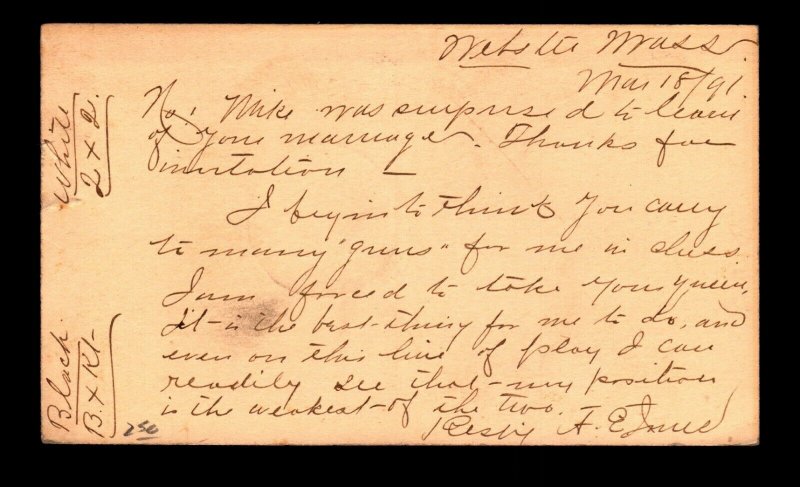 Webster Mass.
Mar 18/91
No, Mike was surprised to learn
of your marriage. Thanks for
invitation —
I begin to think you carry
to many "guns" for me in chess.
I am forced to take your queen,
it is the best thing for me to do, and
even on this line of play I can
readily see that my position
is the weakest of the two.
Respy A. E.
White
2 x 2.
Black.
B. x Kt-
250